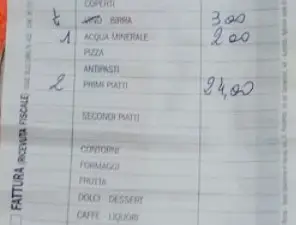 COPERTI
BIRRA 3,00
1 ACQUA MINERALE 2,00
PIZZA
ANTIPASTI
2 PRIMI PIATTI 24,00
SECONDI PIATTI
CONTORNI
FORMAGGI
FRUTTA
DOLCI DESSERT
CAFFÈ LIQUORI
FATTURA (RICEVUTA FISCALE)